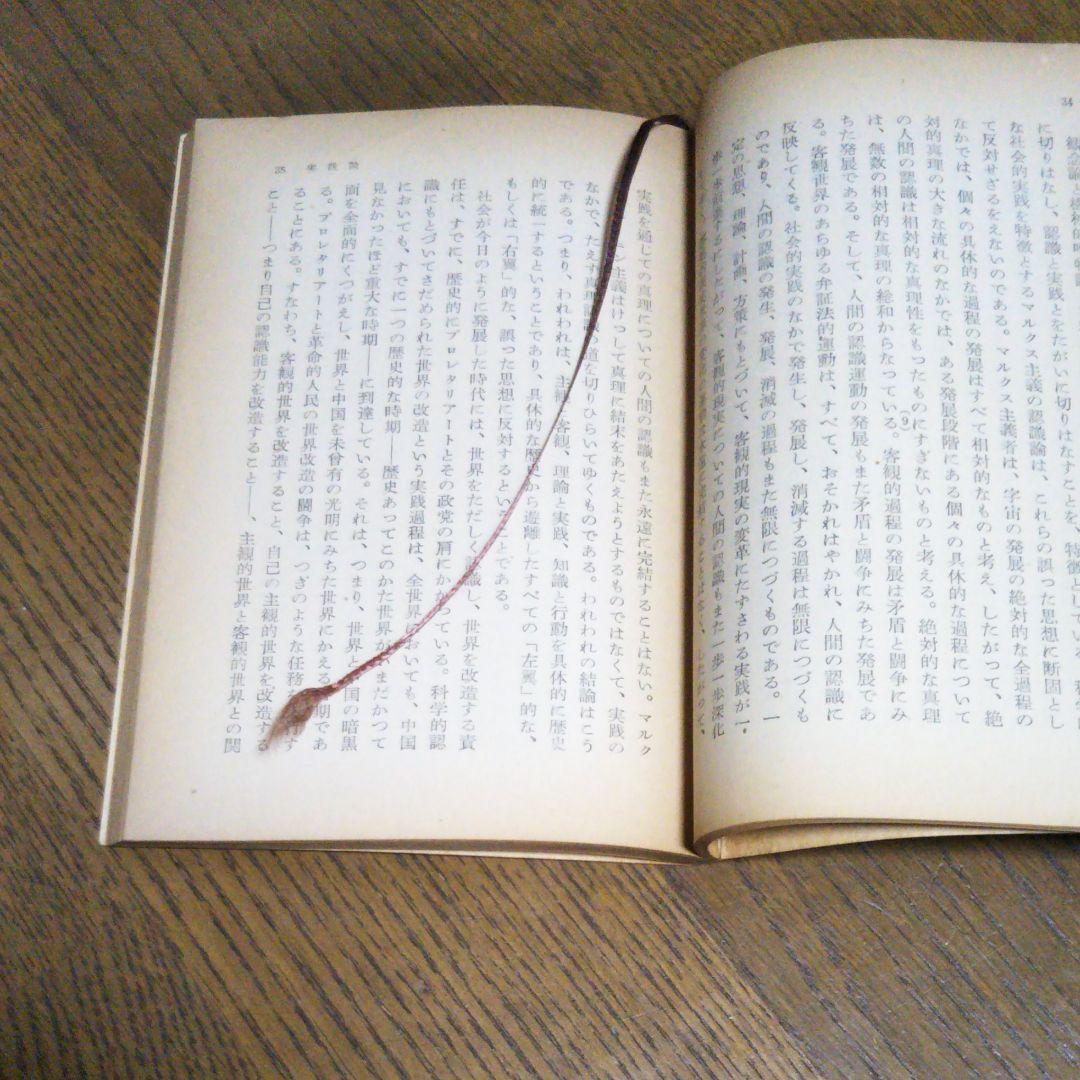 34
に切りはなし、認識と実践とをたがいに切りはなすことを特徴として
に切りはなし、認識と実践とをたがいに切りはなすことを
な社会的実践を特徴とするマルクス主義の認識論は、これらの誤った思想に断固とし
て反対せざるをえないのである。マルクス主義者は、宇宙の発展の絶対的な全過程の
なかでは、個々の具体的な過程の発展はすべて相対的なものと考え、したがって、絶
対的真理の大きな流れのなかでは、ある発展段階にある個々の具体的な過程について
の人間の認識は相対的な真理性をもったものにすぎないものと考える。絶対的な真理
は、無数の相対的な真理の総和からなつている。(9)客観的過程の発展は矛盾と闘争にみ
ちた発展である。そして、人間の認識運動の発展もまた矛盾と闘争にみちた発展であ
る。客観世界のあらゆる弁証法的運動は、すべて、おそかれはやかれ、人間の認識に
反映してくる。社会的実践のなかで発生し、発展し、消滅する過程は無限につづくも
のであり、人間の認識の発生、発展、消滅の過程もまた無限につづくものである。一
定の思想、理論、計画、方策にもとづいて、客観的現実の変革にたずさわる実践が一
歩一歩前進するにしたがって、客観的現実についての人間の認識もまた一歩一歩深化
35 実践論
実践を通じての真理についての人間の認識もまた永遠に完結することはない。マルク
ス主義はけっして真理に結末をあたえようとするものではなくて、実践の
なかで、たえず真理認識の道を切りひらいてゆくものである。われわれの結論はこう
である。つまり、われわれは、主観と客観、理論と実践、知識と行動を具体的に歴史
的に統一するということであり、具体的な歴史から遊離したすべての「左翼」的な、
もしくは「右翼」的な、誤った思想に反対するということである。
社会が今日のように発展した時代には、世界をただしく認識し、世界を改造する責
任は、すでに、歴史的にプロレタリアートとその政党の肩にかかっている。科学的認
識にもとづいてさだめられた世界の改造という実践過程は、全世界においても、中国
においても、すでに一つの歴史的な時期――歴史あつてこのかた世界がいまだかつて
見なかったほど重大な時期――に到達している。それは、つまり、世界と中国の暗黒
面を全面的にくつがえし、世界と中国を未曾有の光明にみちた世界にかえる時期であ
る。プロレタリアートと革命的人民の世界改造の闘争は、つぎのような任務を実行す
ることにある。すなわち、客観的世界を改造すること、自己の主観的世界を改造する
こと――つまり自己の認識能力を改造すること――、主観的世界と客観的世界との関